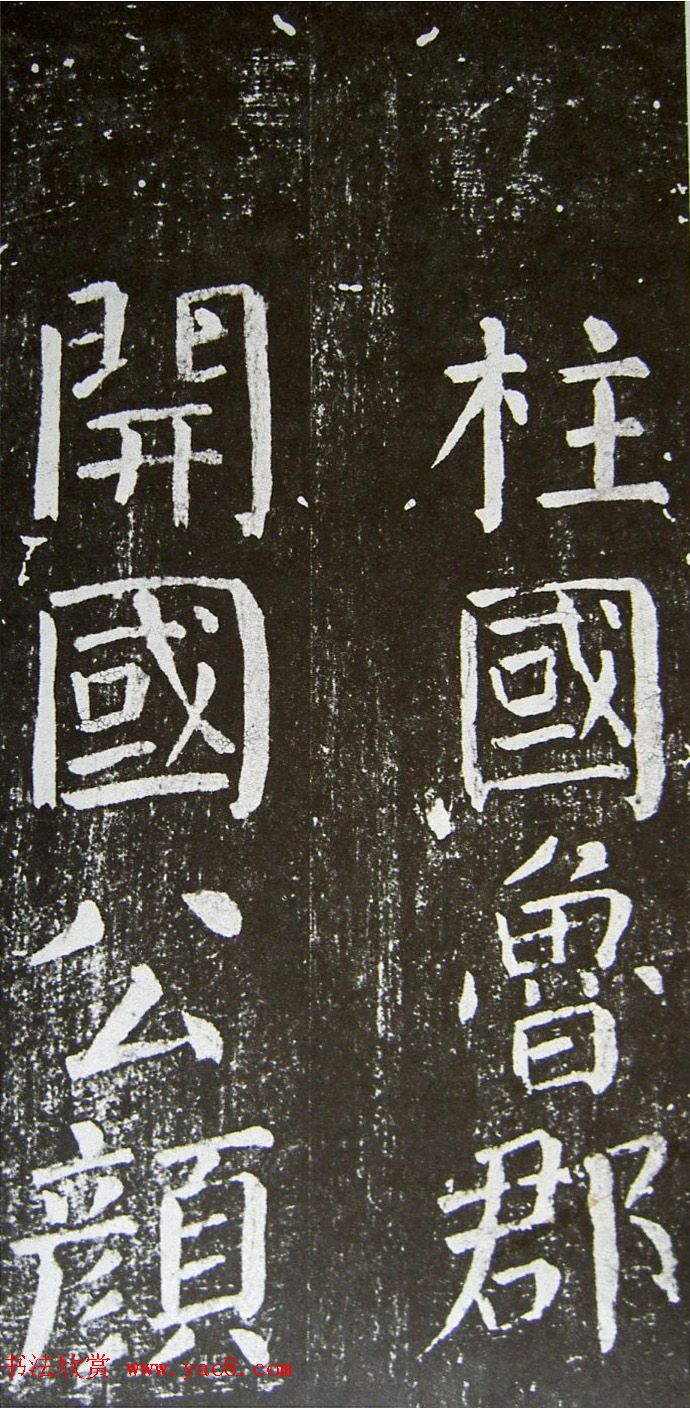 柱國魯郡
開國公顏
书法欣赏 www.yac8.com